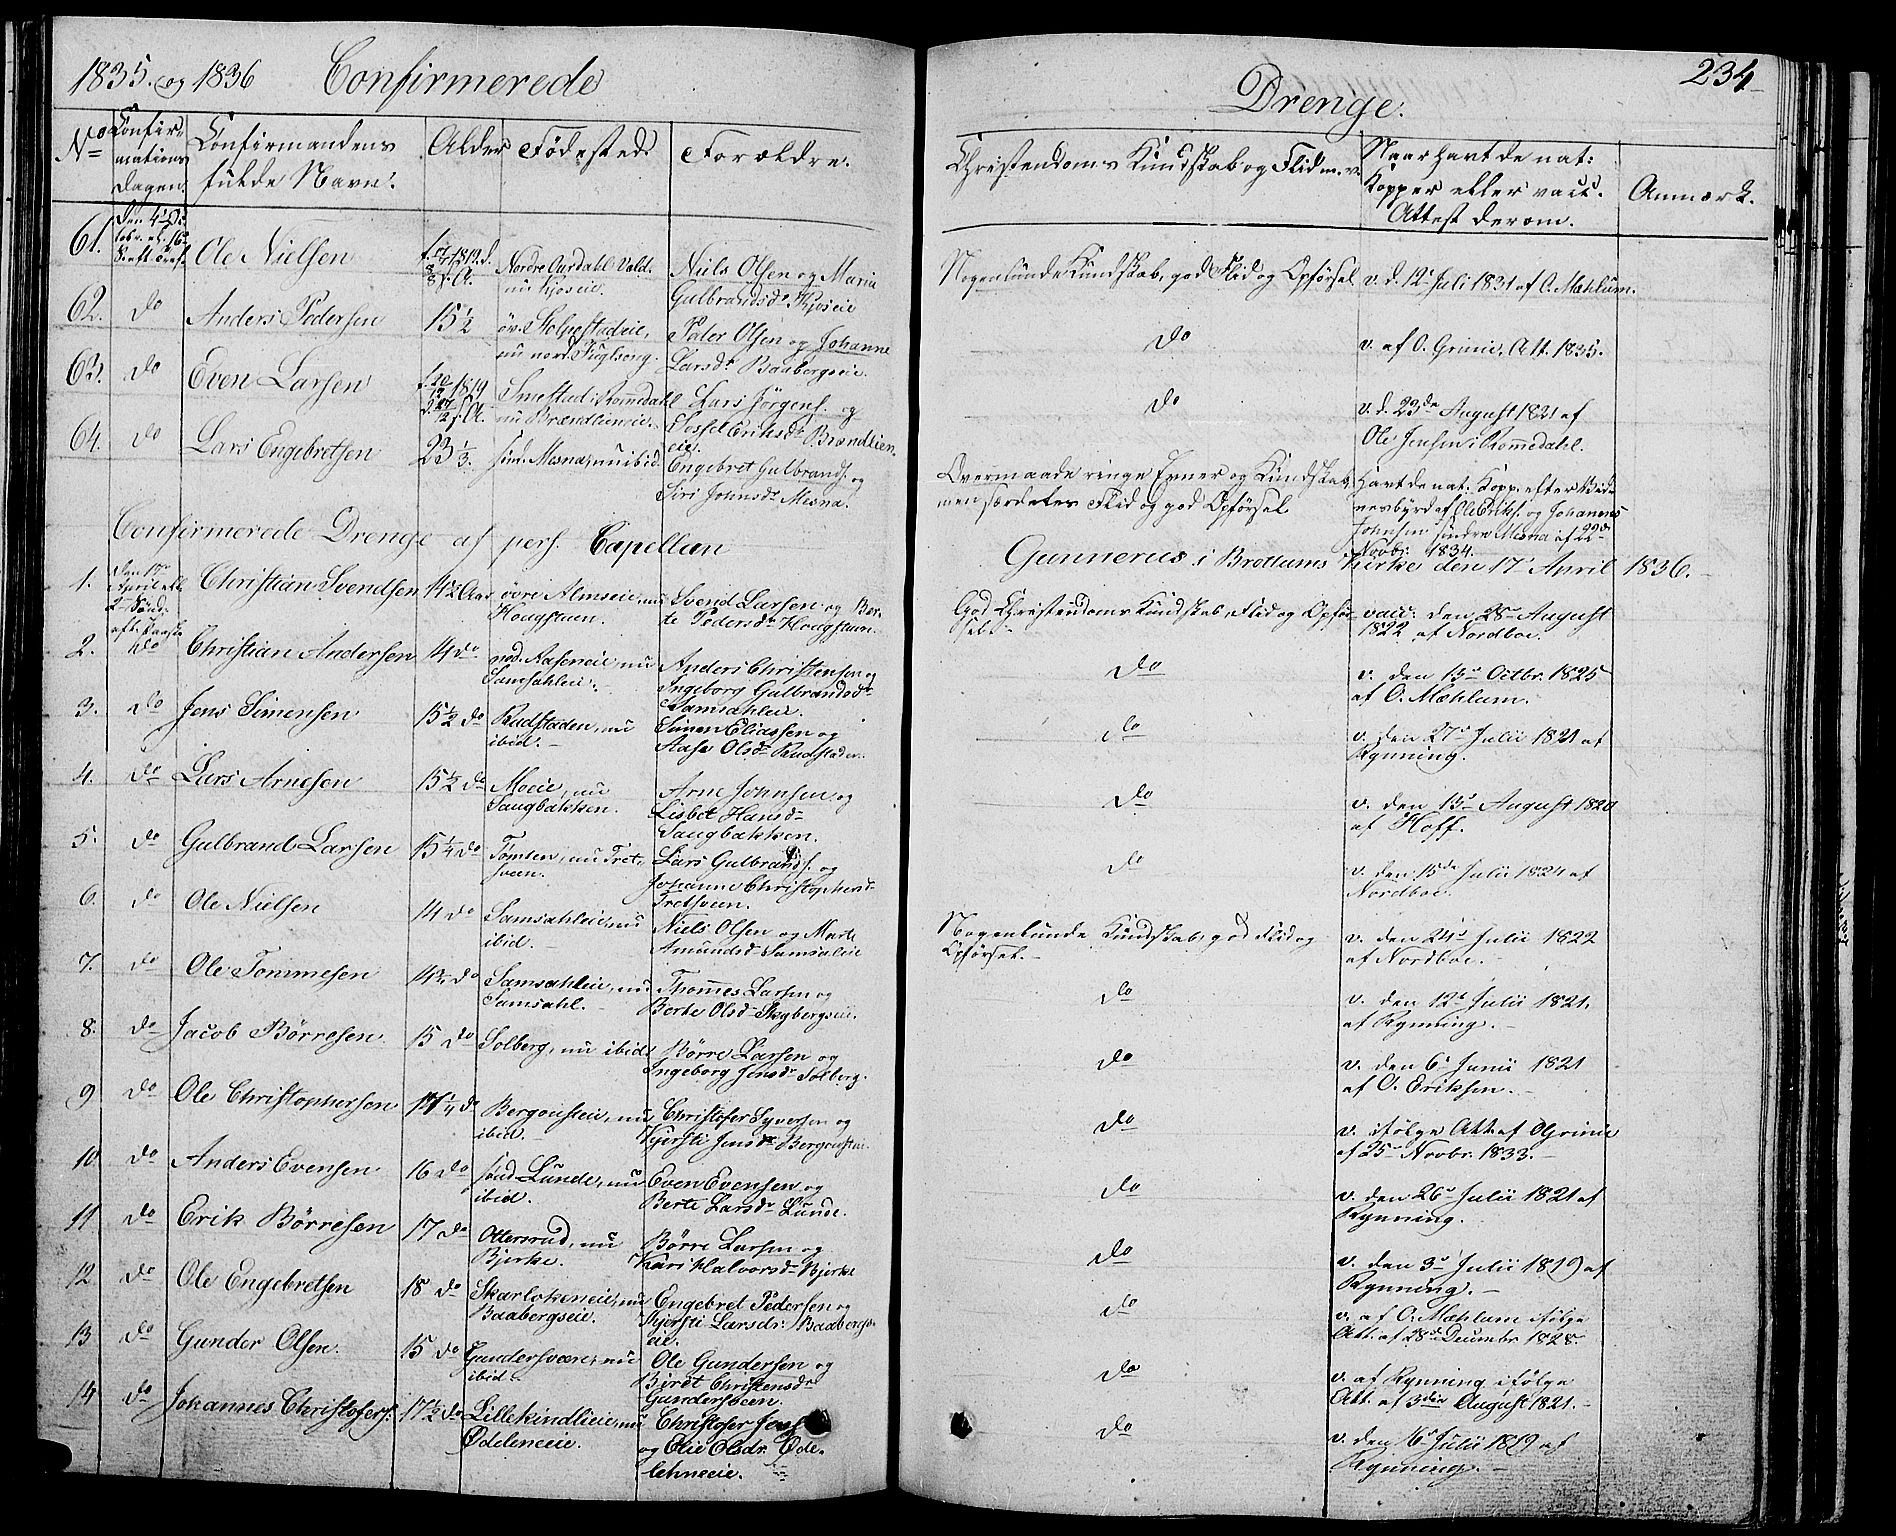 1835. og 1836 Confirmerede
Drenge.
234
No
Confir-
mations
Dagen.
Confirmandens
fulde Navn.
Alder
Födested
Forældre.
Christendoms Kundskab og Flid m. v.
Naar havt de nat:
Kopper eller vacc.
Attest derom.
Anmærk.
61.
Ole Nielsen
Nordre Aurdahl Vald.
nu Kjoseie.
Niels Olsen og Maria
Gulbrandsdr. Kjoseie
Nogenlunde Kundskab, god Flid og Opförsel
v. d. 12te Juli 1831 af O. Mæhlum.
62.
do
Anders Pedersen
15 1/2
öv. Stolpestadeie,
nu nord. Fuglseng.
Peder Olsen og Johanne
Larsdr. Baabergseie.
do
v. af O. Grinie, Att. 1835.
63.
do
Even Larsen
1819
Smestad i Romedahl
nu Brændlieneie.
Lars Jörgens. og
Sossel Eriksdr. Brændlien
eie.
do
v. d. 23de August 1821 af
Ole Jensen i Romedahl.
64.
do
Lars Engebretsen
23 1/3.
sönd. Mesna, nu ibid.
Engebret Gulbrands. og
Siri Johnsdr. Mesna.
Overmaade ringe Evner og Kundskab,
men særdeles Flid og god Opförsel
Havt de nat. Kopp. efter Vid-
nesbyrd af Ole Eriks. og Johannes
Johnsen söndre Mesna af 22de
Novbr. 1834.
Confirmerede Drenge af pers. Capellan
Gunnerus i Brottums Kirke den 17de April 1836.
1.
Den 17de
April
Christian Svendsen
14 1/2 Aar
övre Almseie, nu
Hougstuen.
Svend Larsen og Ber-
te Pedersdr. Hougstuen.
God Christendoms Kundskab, Flid og Opför-
sel.
vacc: den 28de August
1822 af Nordboe.
2.
do
Christian Andersen
14 do
nod. Aaseneie, nu
Samsahleie.
Anders Christensen og
Ingeborg Gulbrandsdr.
Samsahleie.
do
v. den 15de Octbr. 1825
af O. Mæhlum.
3.
do
Jens Simensen
15 1/2 do
Rudstaden, nu
ibid.
Simen Eliassen og
Aase Olsdr. Rudstaden.
do
v. den 27de Julii 1821 af
Rynning.
4.
do
Lars Arnesen
15 1/2 do
Moeie, nu
Saugbakken.
Arne Johnsen og
Lisbet Hansdr.
Saugbakken.
do
v. den 13de August 1820
af Hoff.
5.
do
Gulbrand Larsen
15 1/4 do
Tömten, nu Tret-
sveen.
Lars Gulbrands. og
Johanne Christophersdr.
Tretsveen.
do
v. den 15de Julii 1824 af
Nordboe.
6.
do
Ole Nielsen
14 do
Samsahleie, nu
ibid.
Niels Olsen og Marte
Amundsdr. Samsahleie
Nogenlunde Kundskab, god Flid og
Opförsel.
v. den 24de Julii 1822
af Nordboe.
7.
do
Ole Tommesen
14 3/4 do
Samsahleie, nu
Samsahl.
Thommes Larsen og
Berte Olsdr. Skybergseie.
do
v. den 12te Julii 1821.
af Rynning.
8.
do
Jacob Börresen
15 do
Solberg, nu ibid.
Börre Larsen og
Ingeborg Jensdr. Solberg.
do
v. den 6te Junii 1821
af O. Eriksen.
9
do
Ole Christophersen
do
Bergousteie, nu
ibid.
Christofer Syversen og
Kjersti Jensdr. Bergousteie.
do
v. ifölge Att. af O. Grinie
af 25de Novbr. 1833.
10.
do
Anders Evensen
16 do
sönd. Lunde, nu
ibid.
Even Evensen og
Berte Larsdr. Lunde.
do
v. den 26de Julii 1821 af
Rynning.
11.
do
Erik Börresen
17 do
Ottersrud, nu
Bjerke.
Börre Larsen og
Kari Halvorsdr. Bjerke
do
v. den 3de Julii 1819 af
Rynning.
12
do
Ole Engebretsen
18 do
Skarlokeneie, nu
Baabergseie.
Engebret Pedersen og
Kjersti Larsdr. Baabergs-
eie.
do
v. af O. Mæhlum ifölge
Att. af 28de Decembr. 1828.
13
do
Gunder Olsen.
15 do
Gundersveen, nu
ibid.
Ole Gundersen og
Beret Christensdr.
Gundersveen.
do
v. af Rynning ifölge
Att. af 3die August 1821.
14
do
Johannes Christofers.
17 1/2 do
Lillekindlieie, nu
Ödeleneeie.
Christofer Jens.
og Elie Olsdr. Öde-
lehneeie.
do
v. den 16de Julii 1819 af
Rynning.